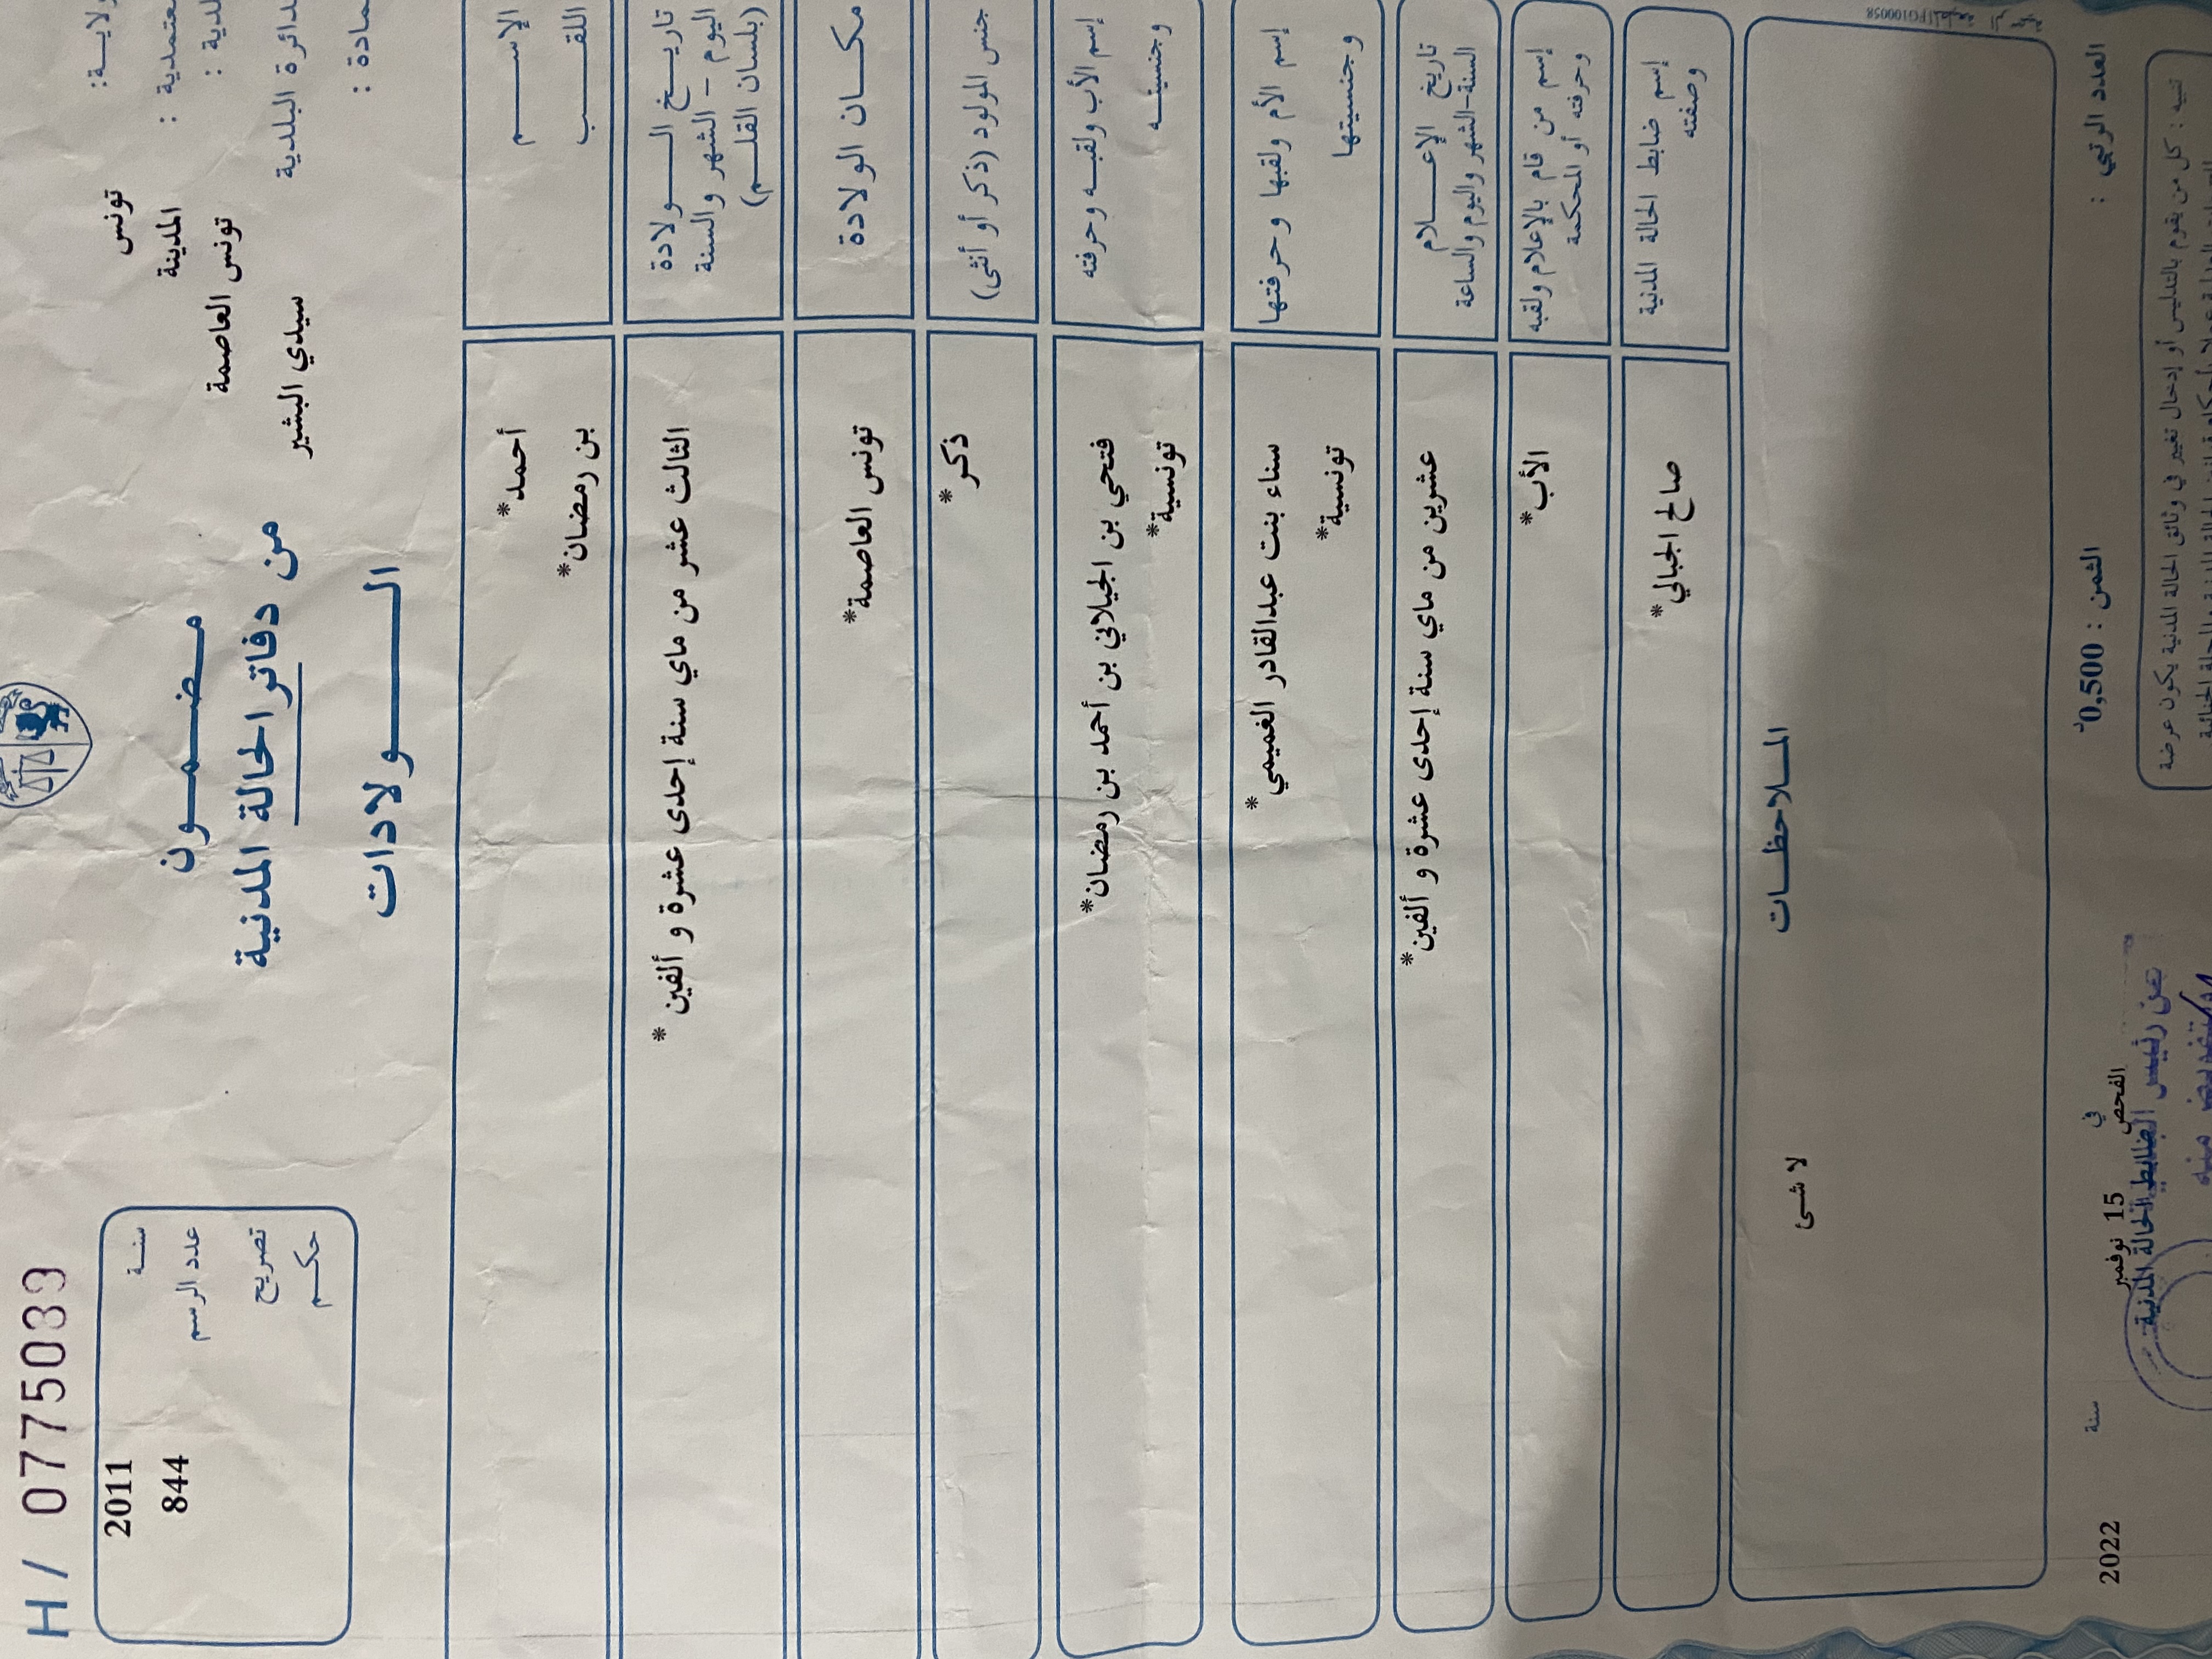 H / 0775039
سنة 2011
عدد الرسم 844
تصريح
حكم
تونس
المدينة
تونس العاصمة
الدائرة البلدية
سيدي البشير
مضمون
من دفاتر الحالة المدنية
الولادات
الإسم أحمد*
اللقب بن رمضان*
تاريخ الولادة
اليوم - الشهر والسنة
(بلسان القلم)
الثالث عشر من ماي سنة إحدى عشرة و ألفين *
مكان الولادة تونس العاصمة*
جنس المولود (ذكر أو أنثى) ذكر *
إسم الأب ولقبه وحرفته فتحي بن الجيلاني بن أحمد بن رمضان*
وجنسيته تونسية*
إسم الأم ولقبها وحرفتها سناء بنت عبدالقادر الغميمي *
وجنسيتها تونسية*
تاريخ الإعلام
السنة-الشهر واليوم والساعة
عشرين من ماي سنة إحدى عشرة و ألفين*
إسم من قام بالإعلام ولقبه
وحرفته أو المحكمة
الأب*
إسم ضابط الحالة المدنية
وصفته
صالح الجبالي *
الملاحظات
لا شئ
العدد الرتبي :
الثمن : 0,500د
الفحص في 15 نوفمبر سنة 2022
ضابط الحالة المدنية
عن رئيس
وبتفويض منه
تنبيه : كل من يقوم بالتدليس أو إدخال تغيير في وثائق الحالة المدنية يكون عرضة